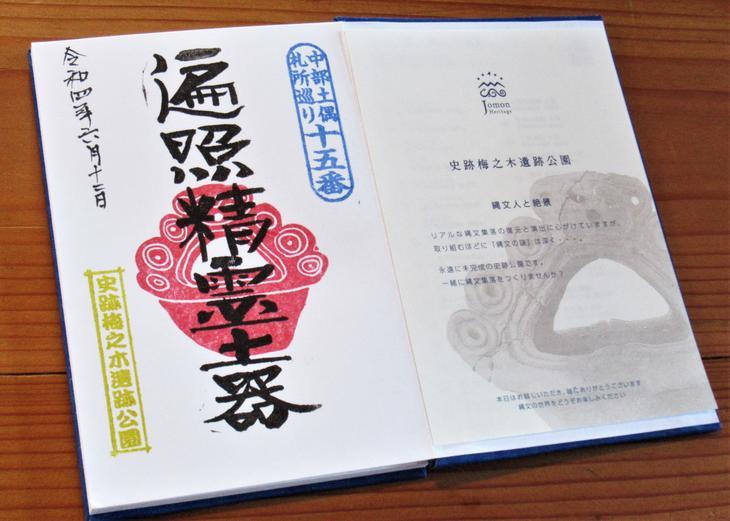 中部土偶
札所巡り
十五番
遍照精霊土器
令和四年六月十二日
史跡梅之木遺跡公園
Jomon
Heritage
史跡梅之木遺跡公園
縄文人と
リアルな縄文集落の復元と演出に心がけていますが、
取り組むほどに「縄文の謎」は深く・・・。
永遠に未完成の史跡公園です。
一緒に縄文集落をつくりませんか？
本日はお越しいただき、誠にありがとうございます
縄文の世界をどうぞお楽しみください